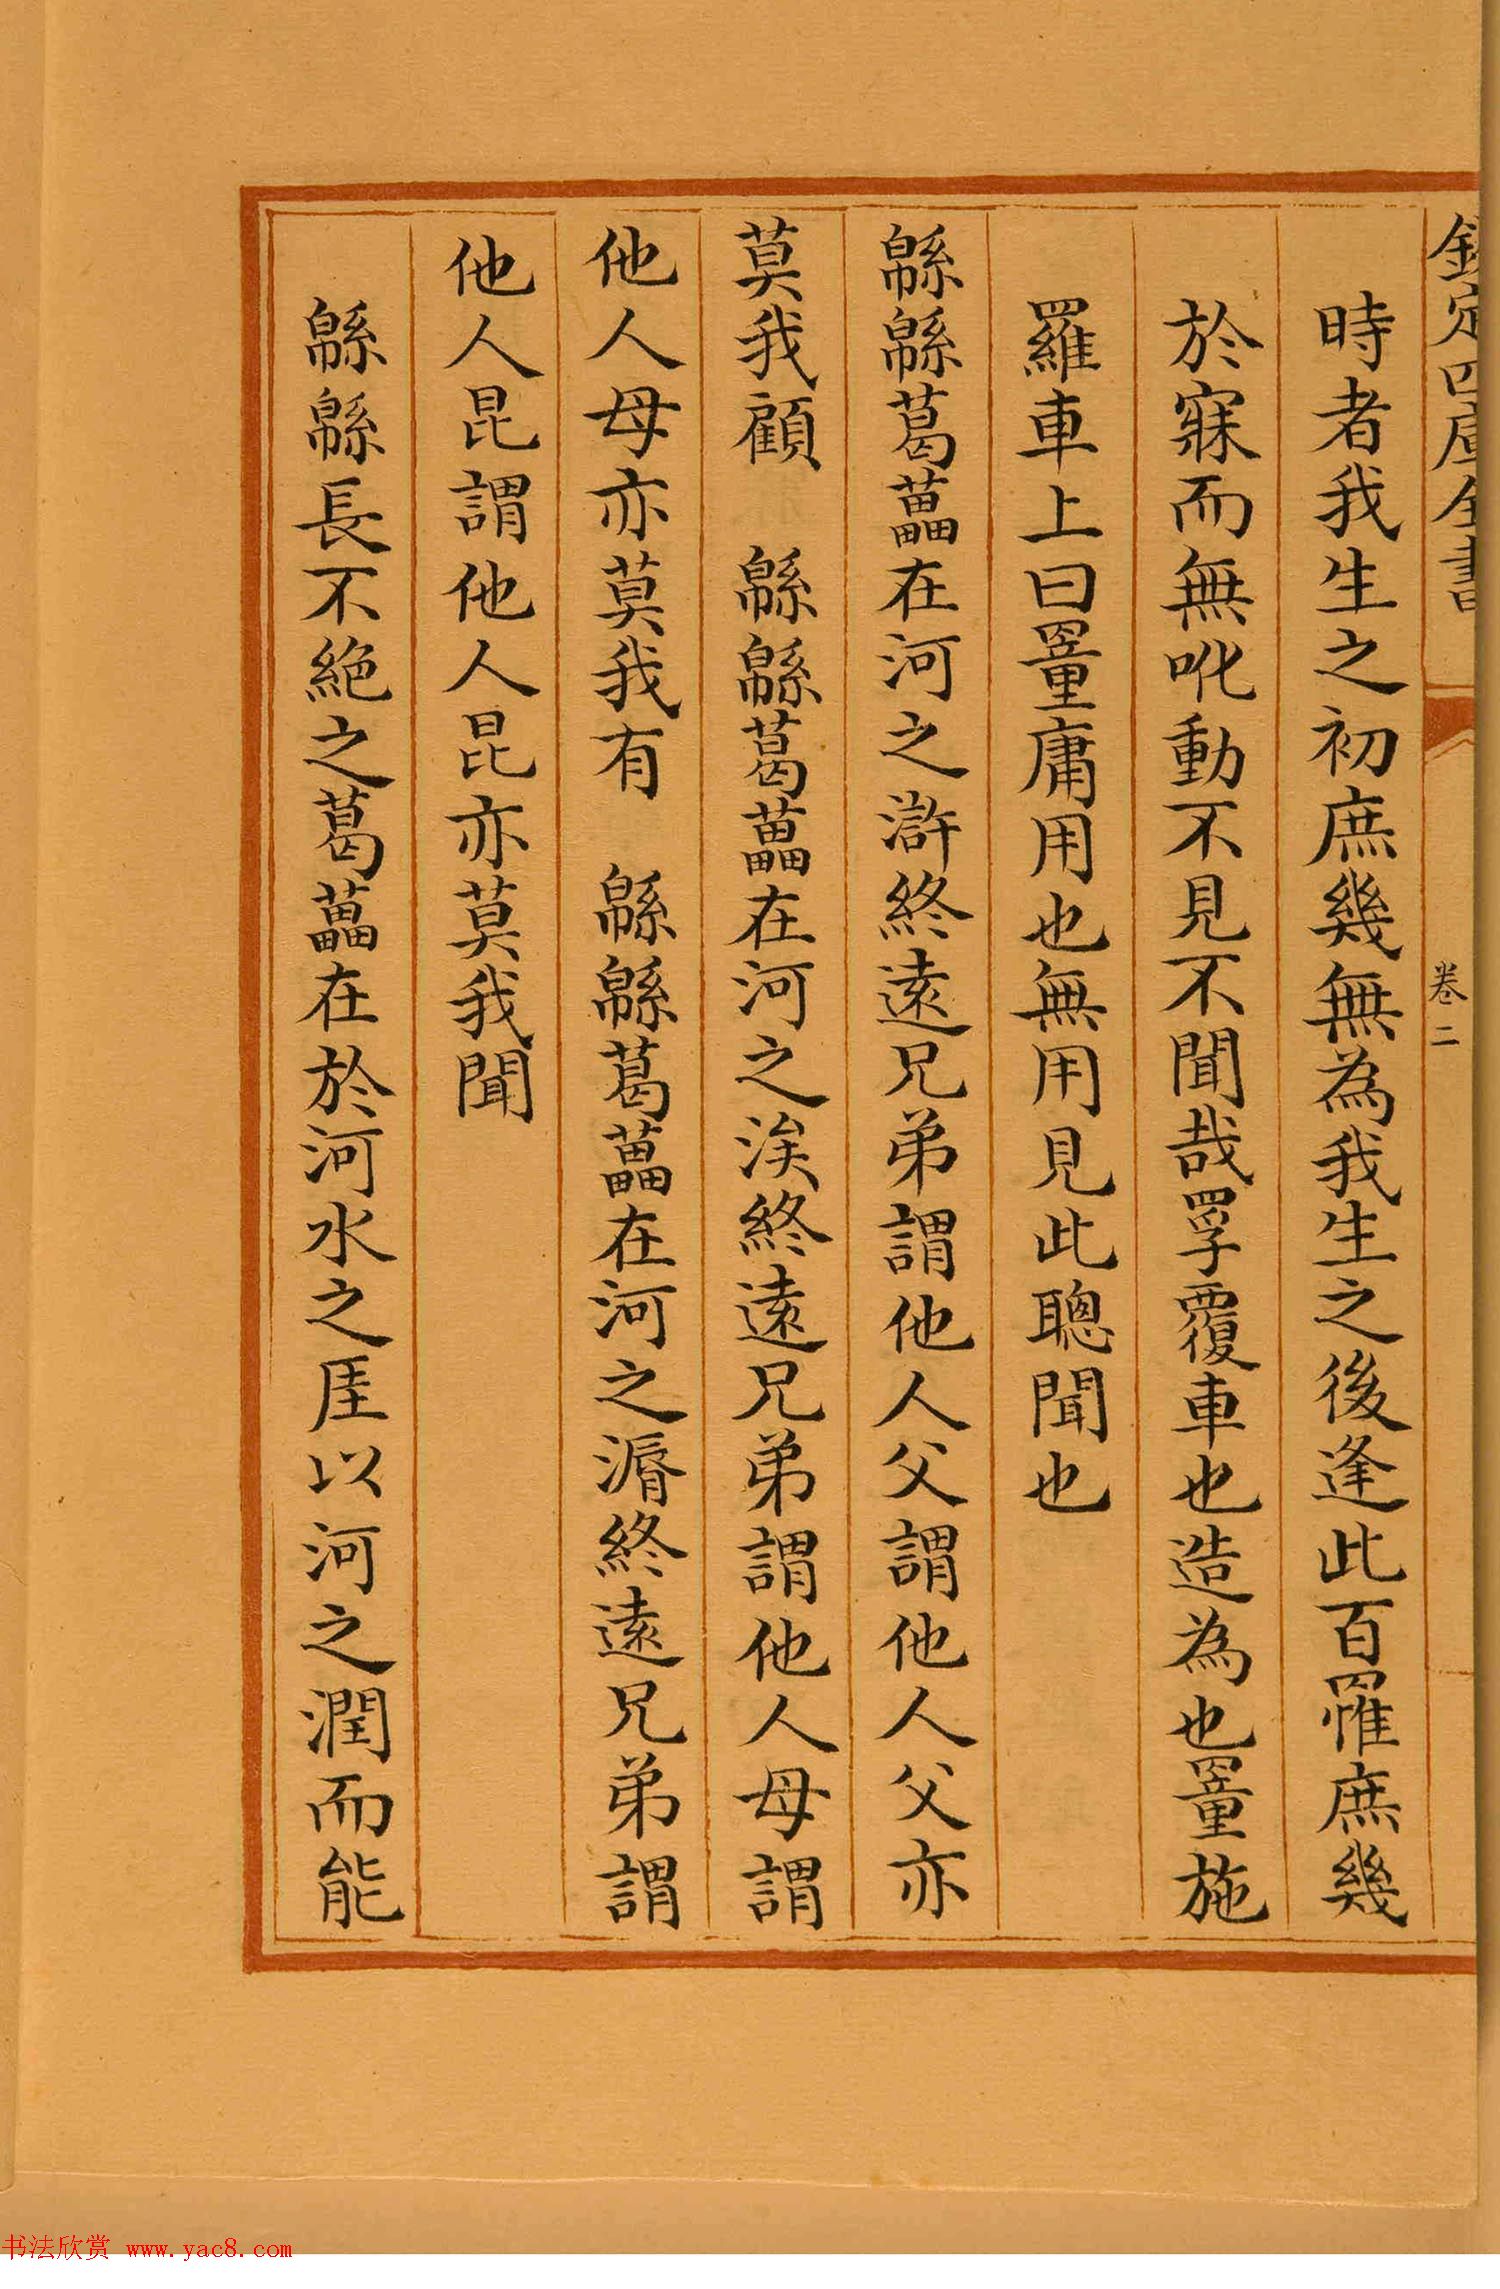 欽定四庫全書
卷二
時者我生之初庶幾無為我生之後逢此百罹庶幾
於寐而無吪動不見不聞哉罦覆車也造為也罿施
羅車上曰罿庸用也無用見此聰聞也
緜緜葛藟在河之滸終遠兄弟謂他人父謂他人父亦
莫我顧　緜緜葛藟在河之涘終遠兄弟謂他人母謂
他人母亦莫我有　緜緜葛藟在河之漘終遠兄弟謂
他人昆謂他人昆亦莫我聞
緜緜長不絶之葛藟在於河水之厓以河之潤而能
书法欣赏 www.yac8.com